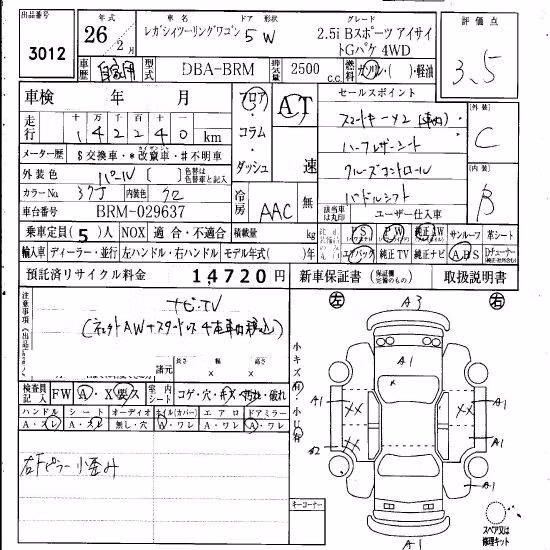 出品番号 3012
年式 26年 2月
車名 レガシィツーリングワゴン
ドア 形状 5 W
グレード 2.5i Bスポーツ アイサイトGパケ 4WD
評価点 3.5
車歴 自家用
型式 DBA-BRM
排気量 2500 c.c.
燃料 ガソリン・( )・軽油
車検 年 月
走行 十 万 千 百 十
1 4 2 2 4 0 km
メーター歴 $交換車・*改竄車・#不明車
外装色 パール ( ) 色替は色替車と記入
カラーNo. 37J 内装色 クロ
車台番号 BRM-029637
乗車定員 (5)人 NOX 適合・不適合 積載量 kg
輸入車 ディーラー・並行 左ハンドル・右ハンドル モデル年式( )年
預託済リサイクル料金 14720円
フロア・コラム・ダッシュ
AT 速
冷房 AAC 無
セールスポイント
スマートキー×2
ハーフレザーシート
クルーズコントロール
パドルシフト
該当車は丸印 ユーザー仕入車
PS PW 純正AW サンルーフ 革シート
エアバック 純正TV 純正ナビ ABS
新車保証書 取扱説明書
外装 C
内装 B
注意事項
ナビ・TV
諸元 長さ 幅 高さ
検査員記入 FW A・X要ス 室内シート コゲ・穴・キズ・汚れ・破れ
ハンドル シート オーディオ エアロ ドアミラー
A・スレ A・スレ 無し・穴 A・ワレ A・ワレ A・ワレ
右Fピラー小歪み
キーコーナー
小キズ有・小U有
左 A3 右
A1
X
A1 XX XX A1
A2 XX A1
A1
A1
A1
スペア又は修理キット